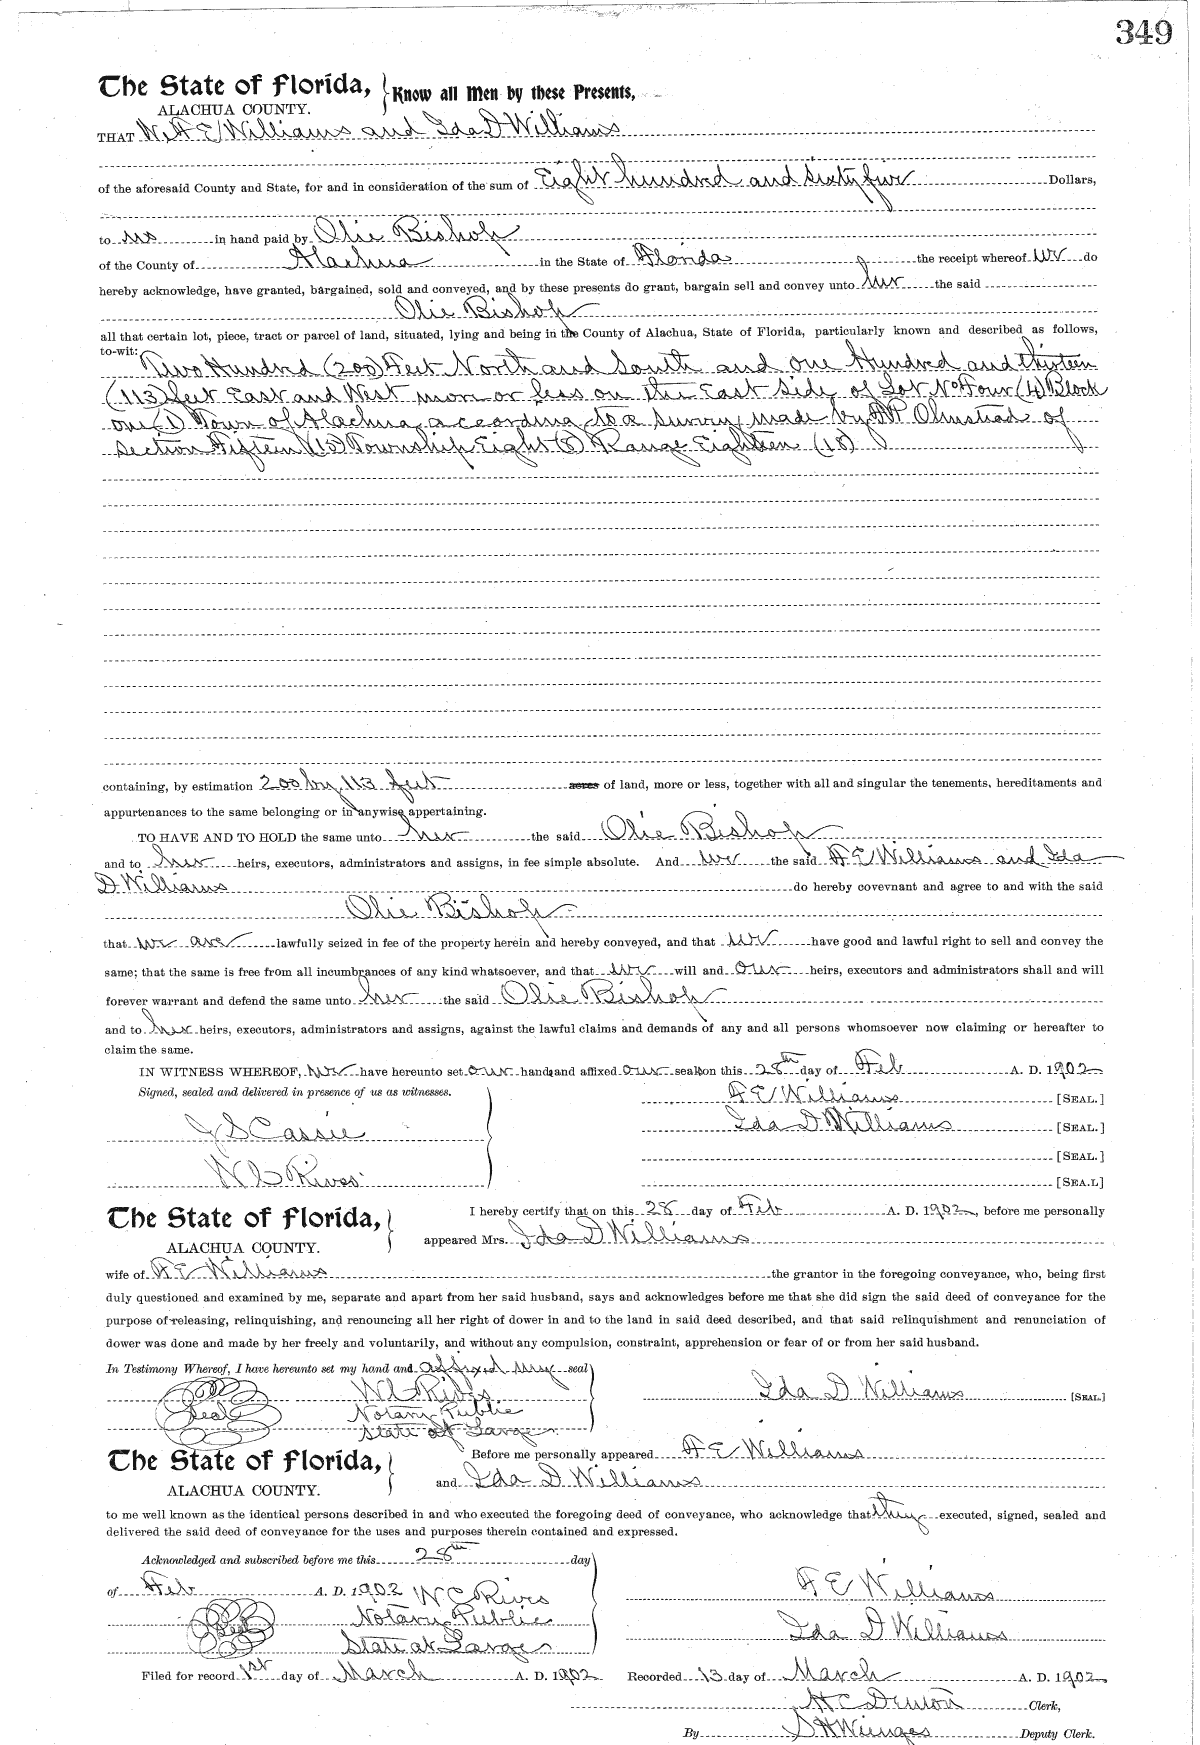 349
The State of Florida, Know all Men by these Presents,
ALACHUA COUNTY.
THAT We A E Williams and Ida D Williams
of the aforesaid County and State, for and in consideration of the sum of Eight hundred and sixty five Dollars,
to us in hand paid by Olie Bishop
of the County of Alachua in the State of Florida the receipt whereof we do
hereby acknowledge, have granted, bargained, sold and conveyed, and by these presents do grant, bargain sell and convey unto her the said
Olie Bishop
all that certain lot, piece, tract or parcel of land, situated, lying and being in the County of Alachua, State of Florida, particularly known and described as follows,
to-wit:
Two Hundred (200) Feet North and South and one Hundred and thirteen
(113) feet East and West more or less on the East Side of Lot No Four (4) Block
one (1) Town of Alachua according to a survey made by Olmstead of
Section Fifteen (15) Township Eight (8) Range Eighteen (18)
containing, by estimation 200 by 113 feet acres of land, more or less, together with all and singular the tenements, hereditaments and
appurtenances to the same belonging or in anywise appertaining.
TO HAVE AND TO HOLD the same unto her the said Olie Bishop
and to her heirs, executors, administrators and assigns, in fee simple absolute. And we the said A E Williams and Ida
D Williams do hereby covevnant and agree to and with the said
Olie Bishop
that we are lawfully seized in fee of the property herein and hereby conveyed, and that we have good and lawful right to sell and convey the
same; that the same is free from all incumbrances of any kind whatsoever, and that we will and our heirs, executors and administrators shall and will
forever warrant and defend the same unto her the said Olie Bishop
and to her heirs, executors, administrators and assigns, against the lawful claims and demands of any and all persons whomsoever now claiming or hereafter to
claim the same.
IN WITNESS WHEREOF, we have hereunto set our hands and affixed our seals on this 28th day of Feb A. D. 1902
Signed, sealed and delivered in presence of us as witnesses. A E Williams [SEAL.]
J S Cassie Ida D Williams [SEAL.]
[SEAL.]
W C Rives [SEA.L]
The State of Florida, I hereby certify that on this 28 day of Feb A. D. 1902, before me personally
ALACHUA COUNTY. appeared Mrs. Ida D Williams
wife of A E Williams the grantor in the foregoing conveyance, who, being first
duly questioned and examined by me, separate and apart from her said husband, says and acknowledges before me that she did sign the said deed of conveyance for the
purpose of releasing, relinquishing, and renouncing all her right of dower in and to the land in said deed described, and that said relinquishment and renunciation of
dower was done and made by her freely and voluntarily, and without any compulsion, constraint, apprehension or fear of or from her said husband.
In Testimony Whereof, I have hereunto set my hand and affixed my seal
Seal W C Rives Ida D Williams [SEAL]
Notary Public
State at Large
The State of Florida, Before me personally appeared A E Williams
ALACHUA COUNTY. and Ida D Williams
to me well known as the identical persons described in and who executed the foregoing deed of conveyance, who acknowledge that they executed, signed, sealed and
delivered the said deed of conveyance for the uses and purposes therein contained and expressed.
Acknowledged and subscribed before me this 28th day
of Feb A. D. 1902 W C Rives A E Williams
Seal Notary Public
State at Large Ida D Williams
Filed for record 1st day of March A. D. 1902 Recorded 13 day of March A. D. 1902
H C Denton Clerk,
By S H Wienges Deputy Clerk.